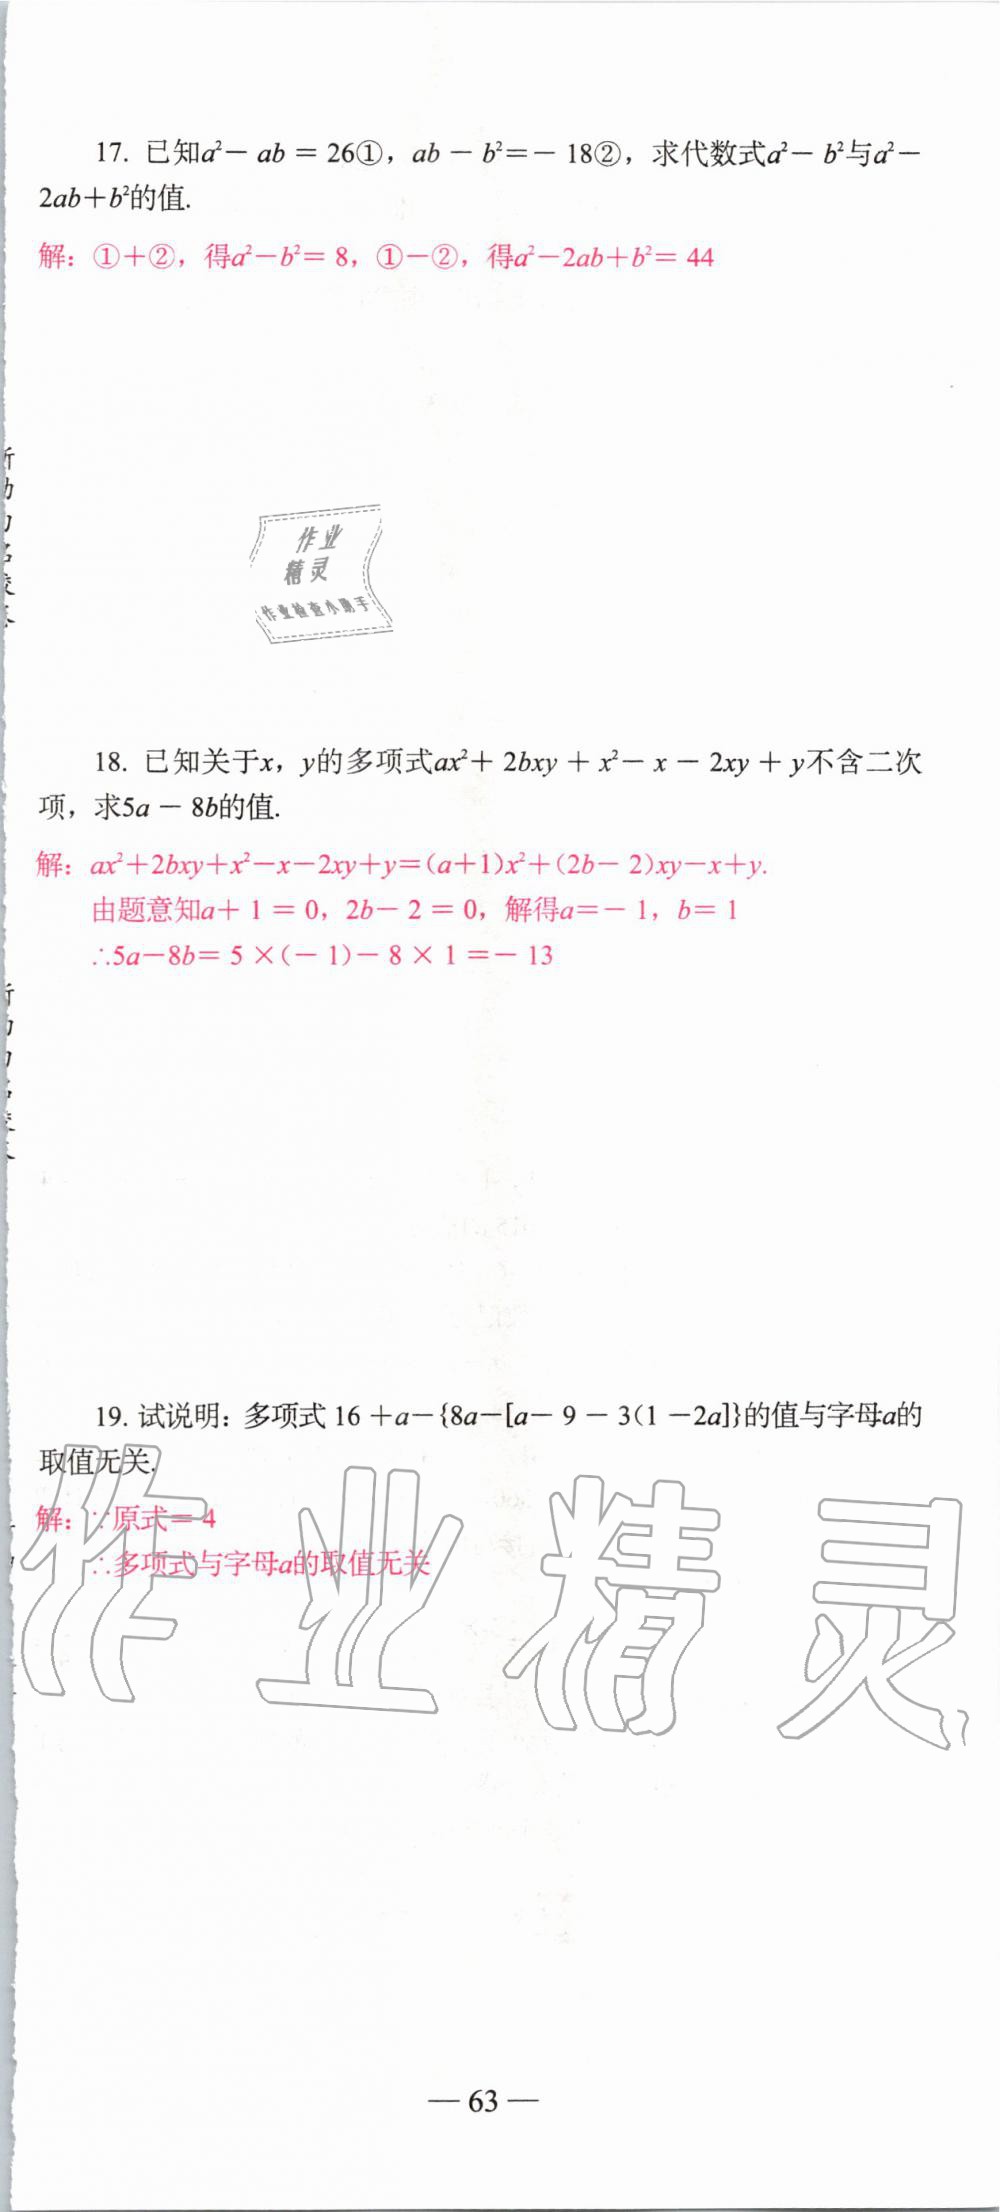 17. 已知a²－ ab ＝ 26①，ab － b²＝－ 18②，求代数式a²－ b²与a²－
2ab＋b²的值.
解：①＋②，得a²－b²＝ 8，①－②，得a²－2ab＋b²＝ 44
作业
精灵
作业检查小助手
18. 已知关于x，y的多项式ax²＋ 2bxy ＋ x²－ x － 2xy ＋ y不含二次
项，求5a － 8b的值.
解：ax²＋2bxy＋x²－x－2xy＋y＝(a＋1)x²＋(2b－ 2)xy－x＋y.
由题意知a＋ 1 ＝ 0，2b－ 2 ＝ 0，解得a＝－ 1，b＝ 1
∴5a－8b＝ 5 ×(－ 1)－ 8 × 1 ＝－ 13
19. 试说明：多项式 16 ＋a－{8a－[a－ 9 － 3(1 －2a]}的值与字母a的
取值无关.
解：∵原式＝ 4
∴多项式与字母a的取值无关
作业精灵
— 63 —